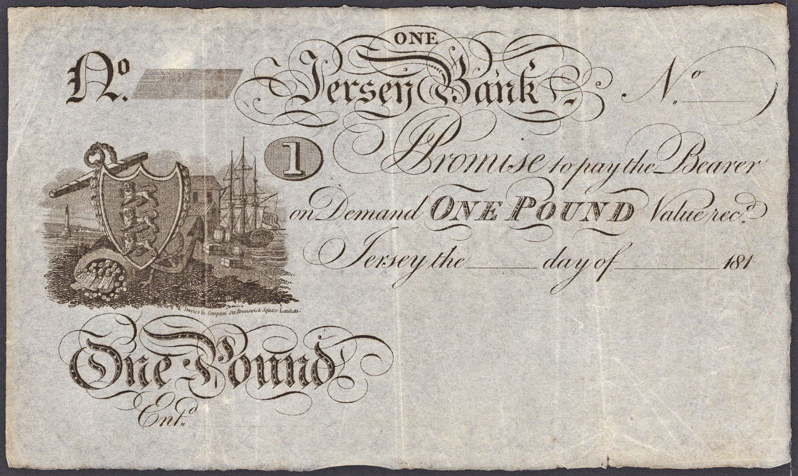 ONE
No. Jersey Bank No.
1 Promise to pay the Bearer
on Demand ONE POUND Value recd.
Jersey the day of 181
Brunswick Square London
One Pound
Entd.